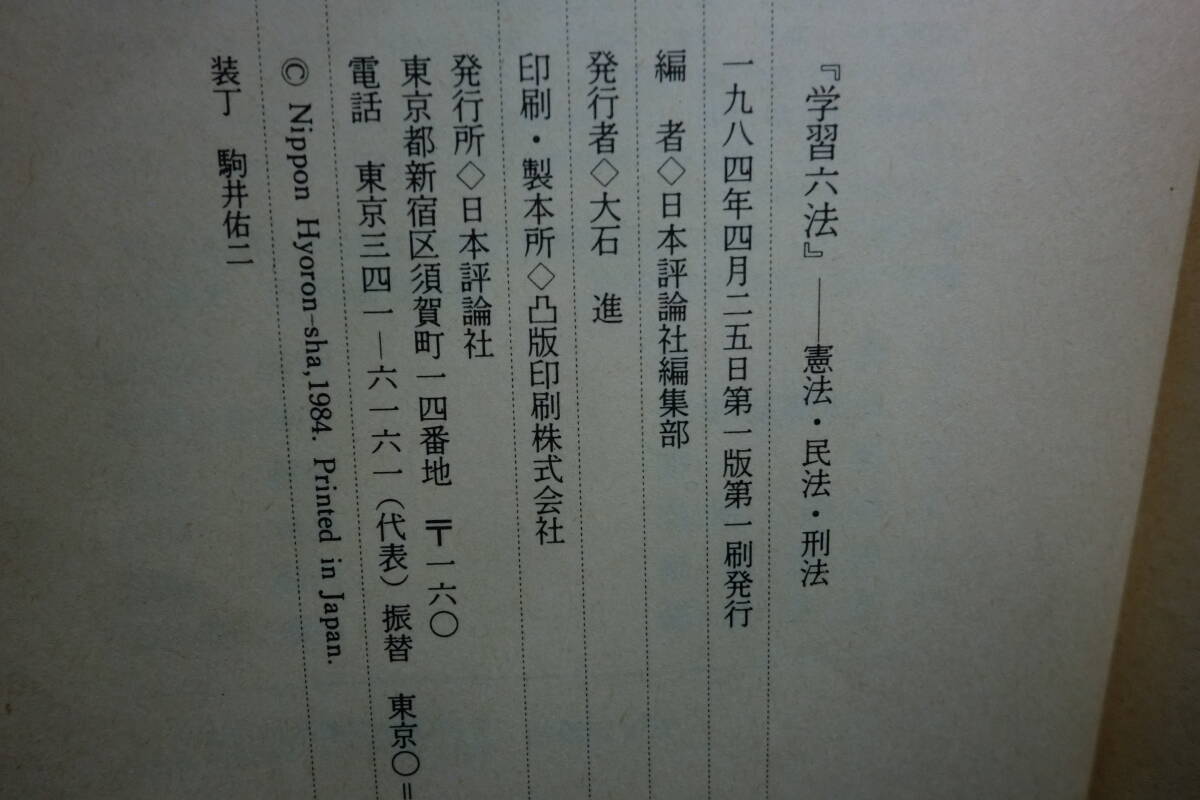 『学習六法』――憲法・民法・刑法
一九八四年四月二五日第一版第一刷発行
編　者◇日本評論社編集部
発行者◇大石　進
印刷・製本所◇凸版印刷株式会社
発行所◇日本評論社
東京都新宿区須賀町一四番地　〒一六〇
電話　東京三四一―六一六一（代表）振替　東京〇＝
© Nippon Hyoron-sha, 1984. Printed in Japan.
装丁　駒井佑二